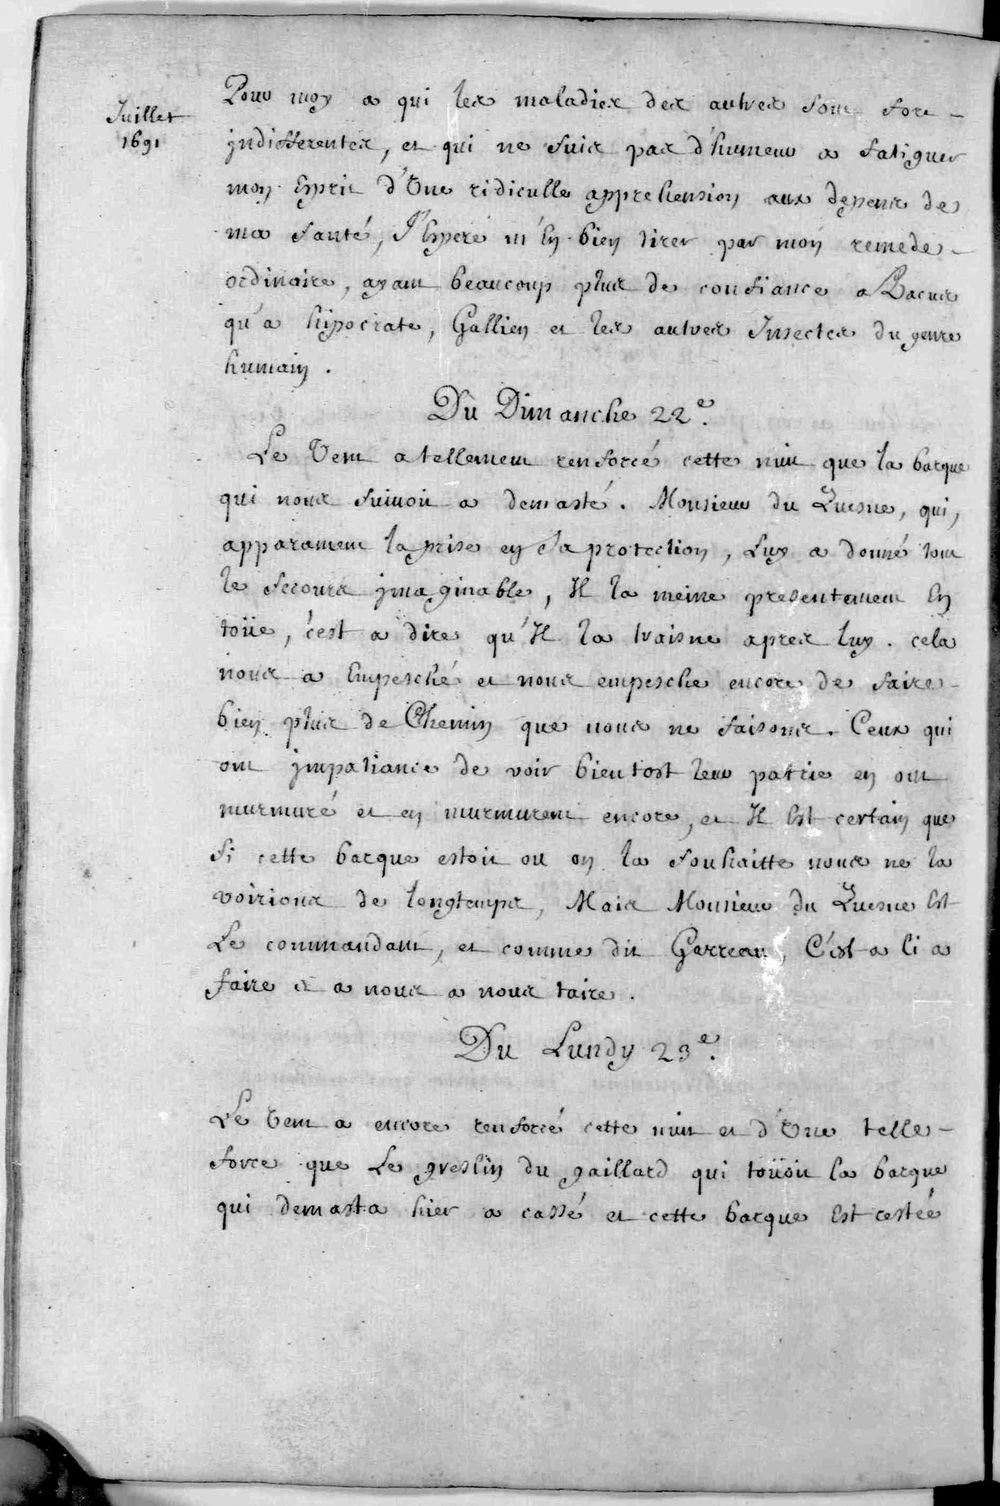 Juillet
1691
Pour moy a qui les maladies des autres sont fort
jndifferentes, et qui ne suis pas d'humeur a fatiguer
mon Esprit d'Une ridiculle apprehension aux depens de
ma santé, J'Espere m'En bien tirer par mon remede
ordinaire, ayant beaucoup plus de confiance a Bacus
qu'a hipocrate, Gallien et les autres Insectes du genre
humain.
Du Dimanche 22e.
Le Vent a tellement renforcé cette nuit que la barque
qui nous suivoit a demasté. Monsieur du Quesne, qui,
apparament la prise en sa protection, Luy a donné tout
le secours jmaginable, Il la meine presentement En
toüe, c'est a dire qu'Il la traisne apres luy. cela
nous a Empesché et nous empesche encore de faire
bien plus de Chemin que nous ne faisons. Ceux qui
ont jmpatiance de voir bientost leur patrie en ont
murmuré et en murmurent encore, et Il Est certain que
si cette barque estoit ou on la souhaitte nous ne la
voirions de longtemps, Mais Monsieur du Quesne Est
Le commandant, et comme dit Garreau, C'est a li a
faire et a nous a nous taire.
Du Lundy 23e.
Le Vent a encore renforcé cette nuit et d'Une telle
force que Le greslin du gaillard qui toüoit la barque
qui demasta hier a cassé et cette barque Est restée